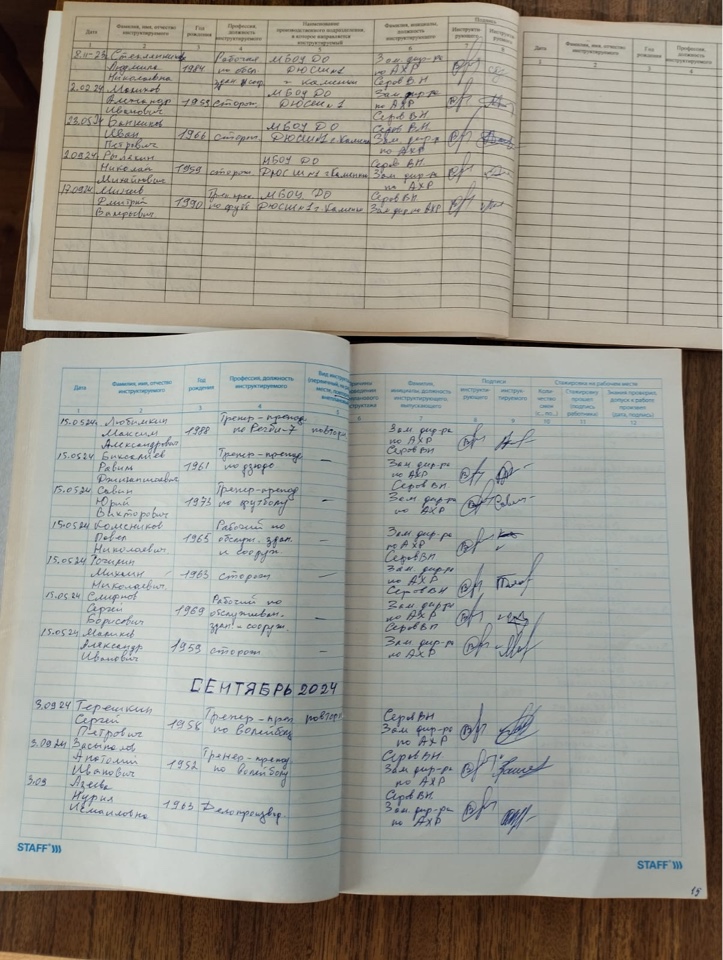 Дата
Фамилия, имя, отчество инструктируемого
Год рождения
Профессия, должность инструктируемого
Наименование производственного подразделения, в которое направляется инструктируемый
Фамилия, инициалы, должность инструктирующего
Подпись
Инструкти-рующего
Инструкти-руемого
1 2 3 4 5 6 7 8
Дата
Фамилия, имя, отчество инструктируемого
Год рождения
Профессия, должность инструктируемого
1 2 3 4
МБОУ ДО Зам. дир-ра
Людмила 1984 по обсл. ДЮСШ №1 по АХР
Николаевна г Каменки Серов ВН
2.02.24 Маликов МБОУ ДО Зам. дир-ра
Александр 1959 сторож ДЮСШ №1 по АХР
Иванович Серов ВН
23.05.24 МБОУ ДО Серов ВН
Иван 1966 сторож ДЮСШ №1 г Каменки Зам. дир-ра
Петрович по АХР
МБОУ ДО Серов ВН
Николай 1959 сторож ДЮСШ №1 г Каменки Зам дир-ра
Михайлович по АХР
17.09.24 МБОУ ДО Серов ВН
Дмитрий 1990 ДЮСШ №1 г Каменки Зам дир по АХР
Валерьевич
Дата
Фамилия, имя, отчество инструктируемого
Год рождения
Профессия, должность инструктируемого
Вид инструктажа
Фамилия, инициалы, должность инструктирующего, допускающего
Подписи
инструкти-рующего
инструкти-руемого
Стажировка на рабочем месте
Коли-чество смен
Стажировку прошел (подпись работника)
Знания проверил, допуск к работе произвел (дата, подпись)
1 2 3 4 5 6 7 8 9 10 11 12
15.05.24 Любимкин Тренер-препод. Зам дир-ра
Максим 1988 по Регби-7 повторн по АХР
Александрович Серов ВН
15.05.24 Тренер-препод Зам дир-ра
Равиль 1961 по дзюдо – по АХР
Серов ВН
15.05.24 Савин Тренер-препод Зам дир-ра
Юрий 1973 по футболу – по АХР
Викторович
15.05.24 Колесников Рабочий по Зам дир-ра
Павел 1965 обслуж. здан. – по АХР
Николаевич и сооруж. Серов ВН
15.05.24 Зам. дир-ра
Михаил 1963 сторож – по АХР
Николаевич Серов ВН
15.05.24 Смирнов Рабочий по Зам дир-ра
Сергей 1969 обслуживан. – по АХР
Борисович здан-сооруж. Серов ВН
15.05.24 Маликов Зам дир-ра
Александр 1959 сторож – по АХР
Иванович
СЕНТЯБРЬ 2024
3.09.24 Терешкин Тренер-препод повторн Серов ВН
Сергей 1958 по волейболу Зам дир-ра
Петрович по АХР
3.09.24 Тренер-препод. Серов ВН
Анатолий 1952 по волейболу Зам дир-ра
Иванович по АХР
3.09 Серов ВН
Нурия 1963 Делопроизвод. Зам дир-ра
Исмаиловна по АХР
STAFF
STAFF
15